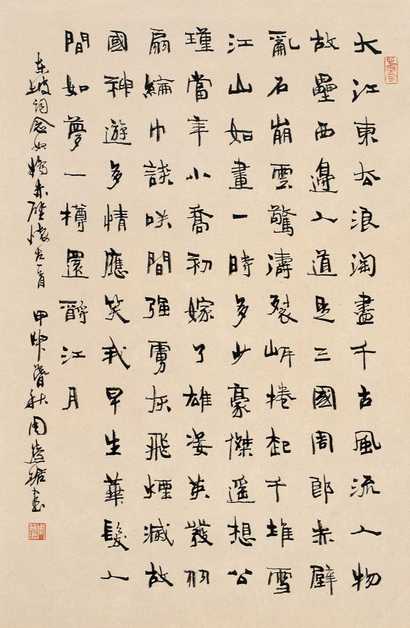 大江東去浪淘盡千古風流人物
故壘西邊人道是三國周郎赤壁
亂石崩雲驚濤裂岸捲起千堆雪
江山如畫一時多少豪傑遙想公
瑾當年小喬初嫁了雄姿英發羽
扇綸巾談咲間强虜灰飛煙滅故
國神遊多情應笑我早生華髮人
間如夢一樽還酹江月
東坡詞念奴嬌赤壁懷古一首 甲申暮秋 周慧珺書